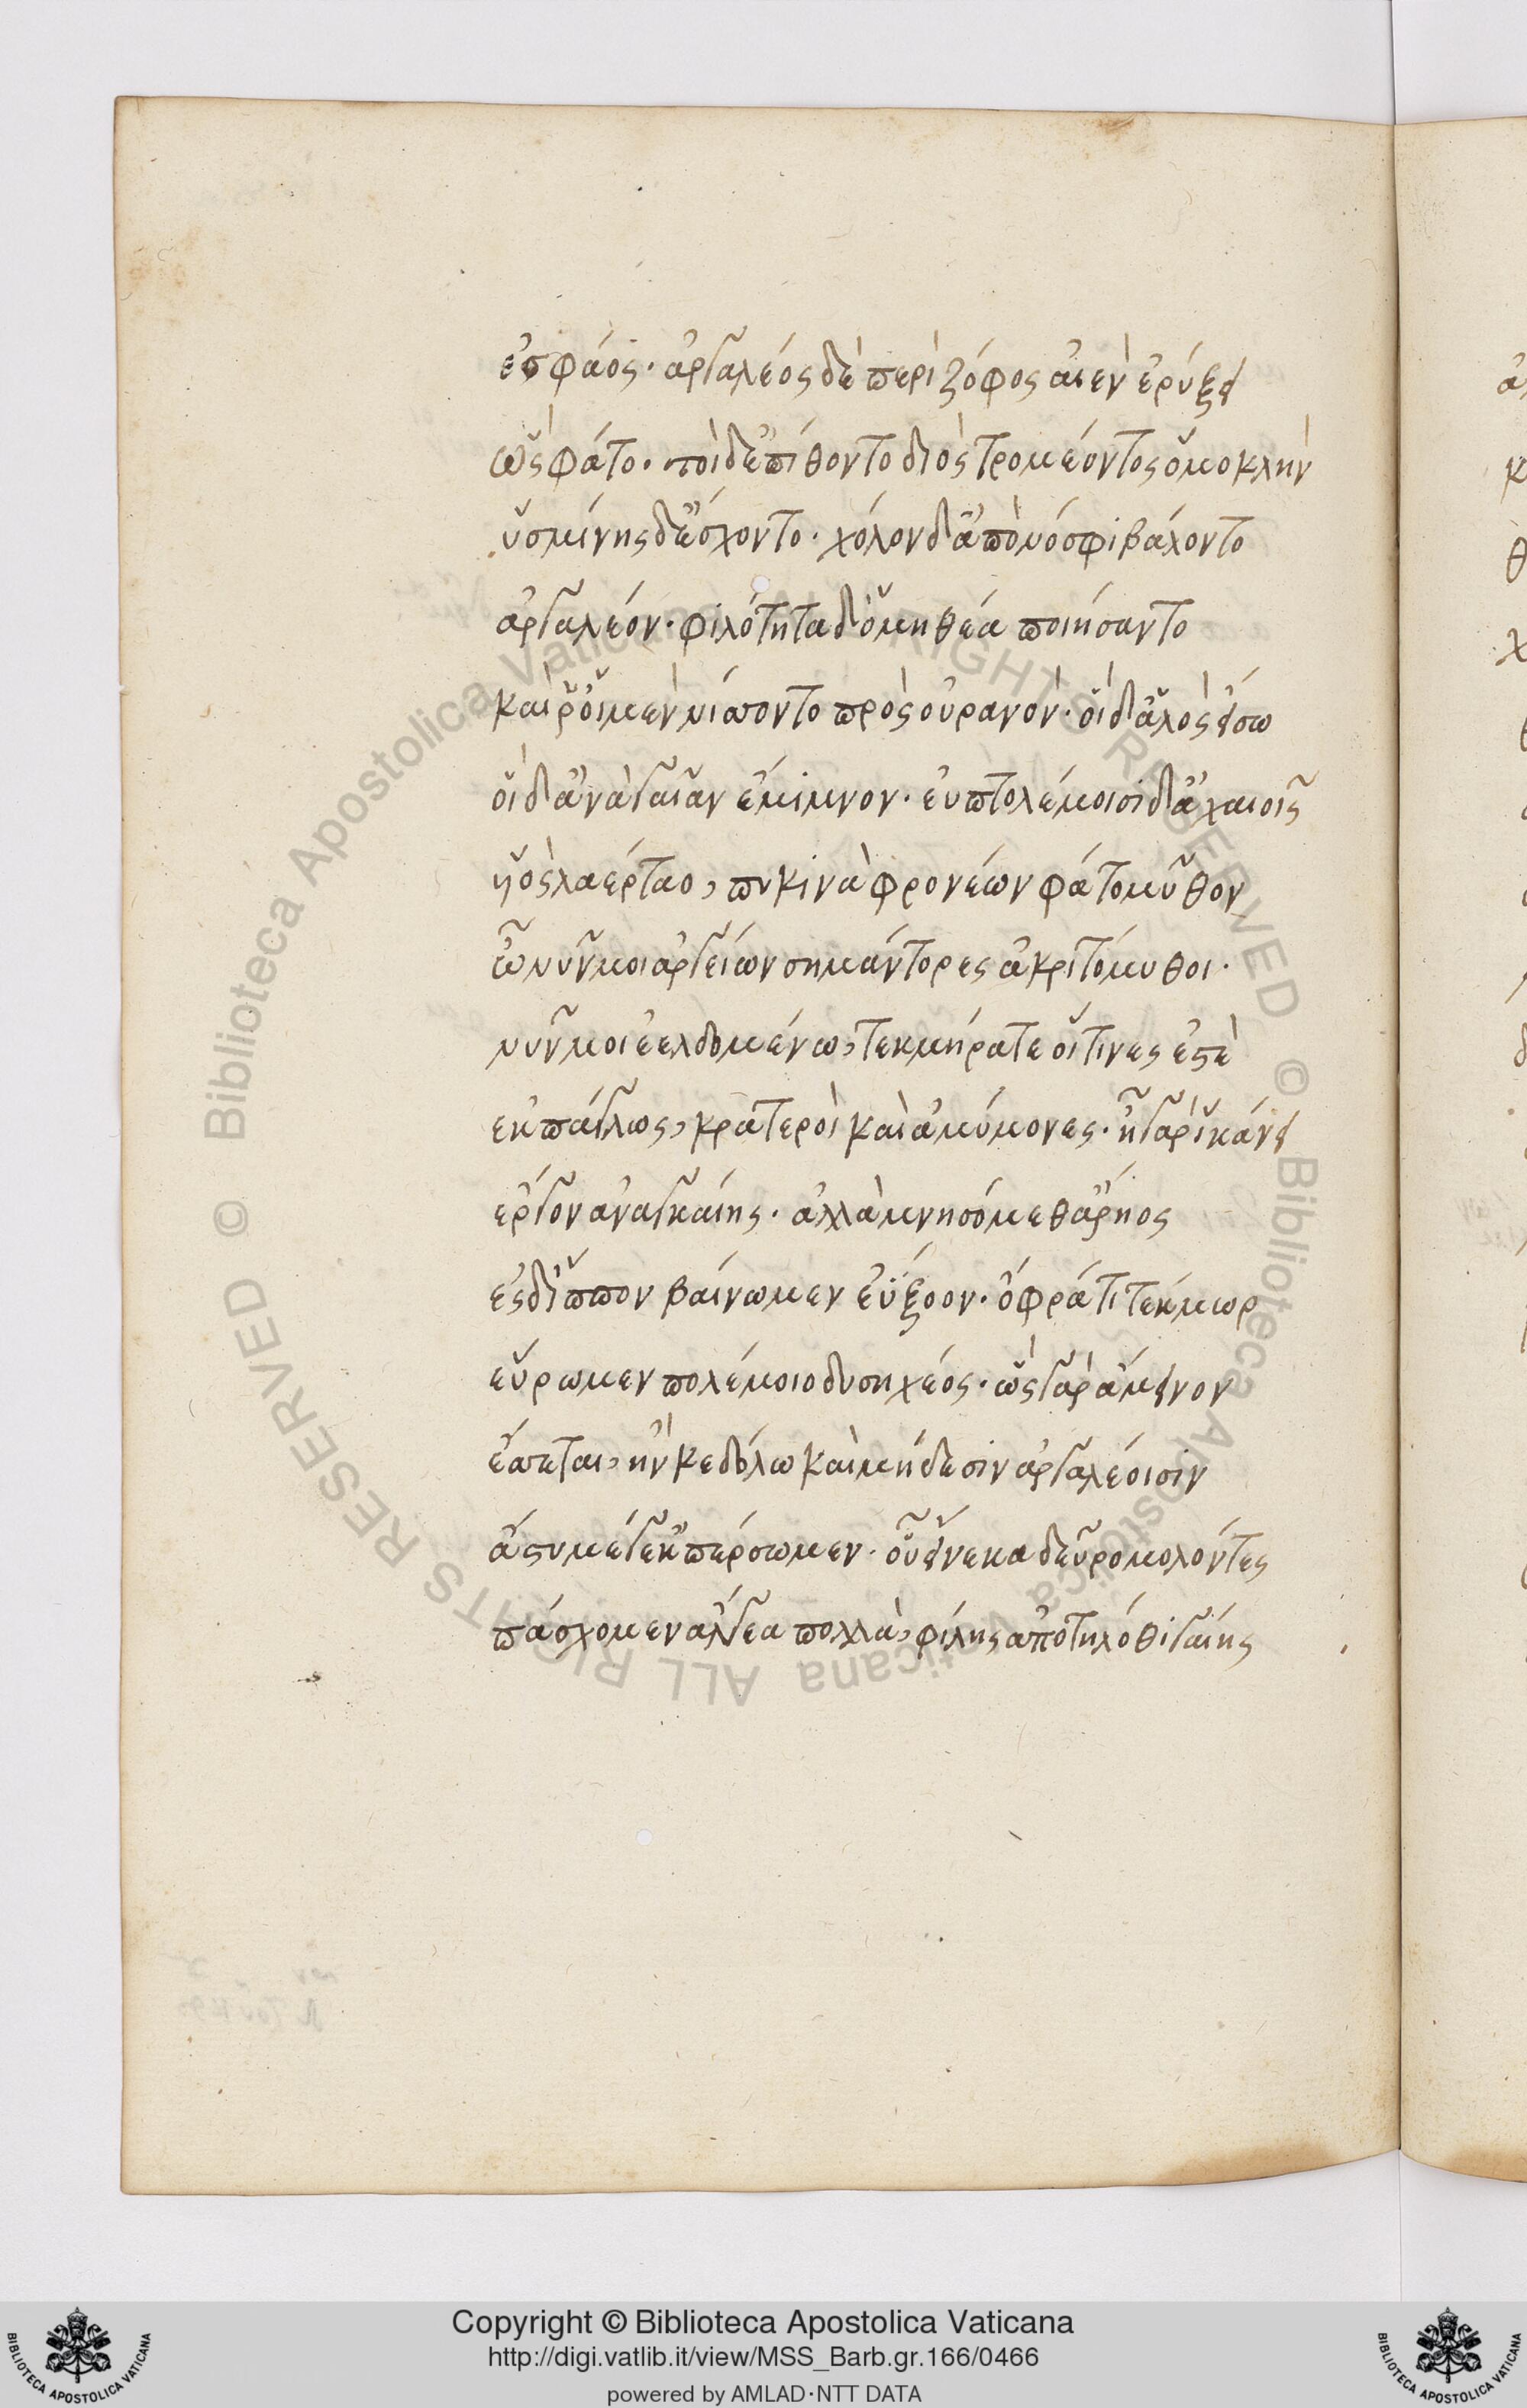 ἐσ φάος· ἀργαλέος δὲ περὶ ζόφος αἰὲν ἐρύξει
ὣς φάτο· τοὶ δ' ἐπίθοντο διὸς τρομέοντος ὁμοκλὴν
ὑσμίνης δ' ἔσχοντο· χόλον δ' ἀπὸ νόσφι βάλοντο
ἀργαλέον· φιλότητα δ' ὁμηθέα ποιήσαντο
καί ῥ' οἱ μὲν νίσσοντο πρὸς οὐρανόν· οἱ δ' ἁλὸς εἴσω
οἱ δ' ἀνὰ γαῖαν ἔμιμνον· ἐυπτολέμοισι δ' ἀχαιοῖς
υἱὸς λαέρταο, πυκινὰ φρονέων φάτο μῦθον
ὦ νῦν μοι ἀργείων σημάντορες ἀκριτόμυθοι·
νῦν μοι ἐελδομένω, τεκμήρατε οἵτινες ἐστὲ
ἐκπάγλως, κρατεροὶ καὶ ἀμύμονες· ἦ γὰρ ἱκάνει
ἔργον ἀναγκαίης· ἀλλὰ μνησόμεθ' ἄρηος
ἐς δ' ἵππον βαίνωμεν ἐΰξοον· ὄφρά τι τέκμωρ
εὕρωμεν πολέμοιο δυσηχέος· ὣς γὰρ ἄμεινον
ἔσσεται, ἤν κε δόλω καὶ μήδεσιν ἀργαλέοισιν
ἄστυ μέγ' ἐκπέρσωμεν· οὗ εἵνεκα δεῦρο μολόντες
πάσχομεν ἄλγεα πολλὰ, φίλης ἀπὸ τηλόθι γαίης
Copyright © Biblioteca Apostolica Vaticana
http://digi.vatlib.it/view/MSS_Barb.gr.166/0466
powered by AMLAD·NTT DATA